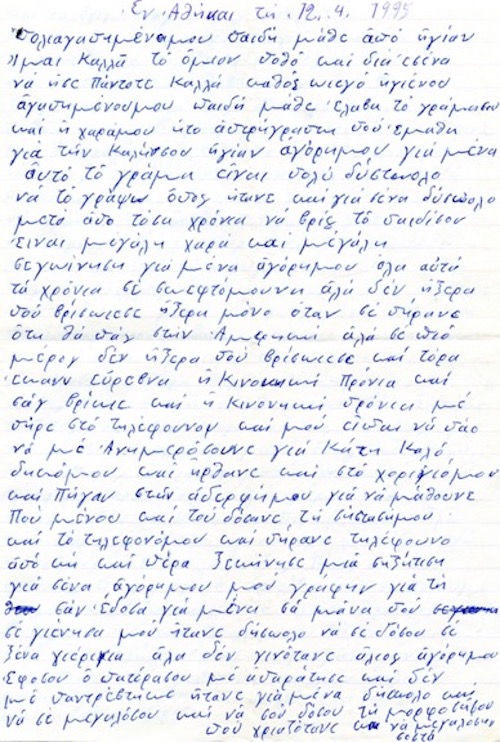 Εν Αθήναι τη 12. 4. 1995
πολιαγαπημένομου παιδή μάθε από ηγίαν
ήμαι Καλλά το όμιον ποθό και διά εσένα
να ήσε Πάντοτε Καλλά καθός ηγιένου
αγαπημένουμου παιδή μάθε έλαβα το γράμασου
και η χαράμου ήτο απερήγραπτη που έμαθα
γιά την Καλήσου ηγίαν αγόρημου γιά μένα
αυτό το γράμα είναι πολύ δύσκολο
να το γράψω όπος ήτανε και γιά σένα δύσκολο
μετά από τόσα χρόνια να βρίς το παιδίσου
είναι μεγάλη χαρά και μεγάλη
σεγκίνηση γιά μένα αγόρημου όλα αυτά
τα χρόνια σε σκεφτόμουνα αλά δεν ήξερα
που βρίσκεσε ήξερα μόνο όταν σε πήρανε
ότη θα πάς στην Αμερική αλά σε πιό
μέρος δεν ήξερα που βρίσκεσε και τόρα
έκανν εύρεβνα η Κινονική Πρόνια και
σάς βρίκε και η Κινονική πρόνια με
πήρε στο τηλέφουνον και μου είπαι να πάο
να με Ανημερόσουνε γιά Κάτη Καλό
δικόμου και ήρθανε και στο χοριγιόμου
και Πήγαν στην αδερφήμου γιά να μάθουνε
Που μένου και του δόσανε τη σύστασήμου
και το τηλεφονόμου και πήρανε τηλέφουνο
από κή και πέρα ξεκίνησε μιά σηζήτιση
γιά σένα αγόρημου μου γράφην γιά τη
σάν έδοσα γιά μένα σα μάνα που
σε γιένησα μου ήτανε δύσκολο να σε δόσου σε
ξένα χιέρια άλα δεν γινότανε άλιος αγόρημου
Έφοσου ο πατέρασου με απαράτησε και δεν
με παντρέβτηκε ήτανε γιά μένα δύσκολο και
να σε μεγαλόσου και να σου δόσου τη μορφοσήσου
που χριαζότανε και να μεγαλόσης
σοστά